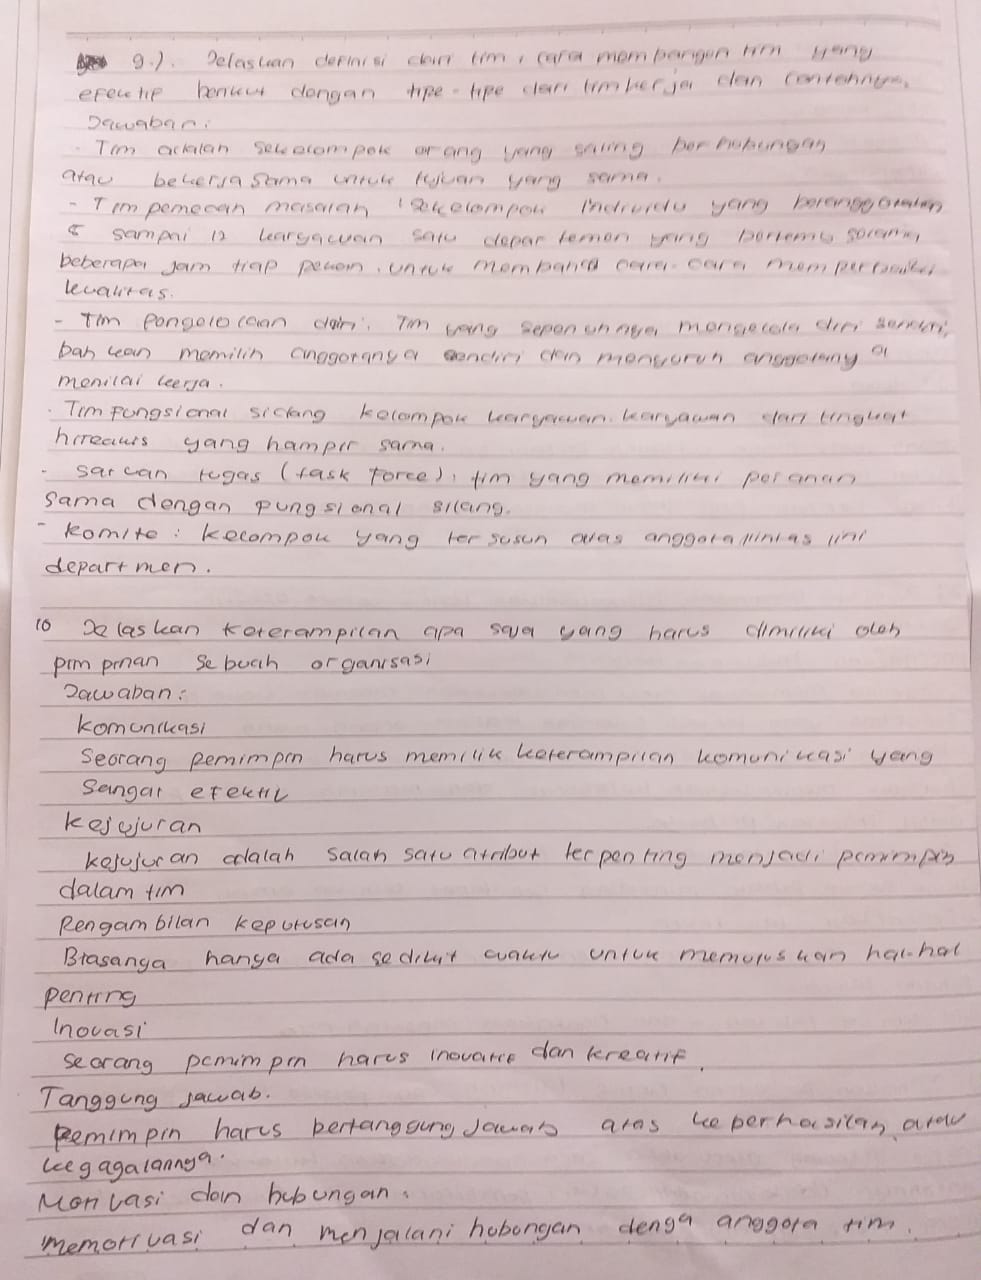 9.). Jelaskan definisi dari tim, cara membangun tim yang
efektip berikut dengan tipe-tipe dari tim kerja dan contohnya.
Jawaban:
- Tim adalah sekelompok orang yang saling berhubungan
atau bekerja sama untuk tujuan yang sama.
- Tim pemecah masalah : sekelompok individu yang beranggotakan
5 sampai 12 karyawan satu departemen yang bertemu selama
beberapa jam tiap pekan, untuk membahas cara-cara memperbaiki
kualitas.
- Tim pengelolaan diri: Tim yang sepenuhnya mengelola diri sendiri,
bahkan memilih anggotanya sendiri dan menyuruh anggotanya
menilai kerja.
- Tim fungsional silang kelompok karyawan-karyawan dari tingkat
hirearkis yang hampir sama.
- satuan tugas (task force), tim yang memiliki peranan
sama dengan pungsional silang.
- komite : kelompok yang tersusun atas anggota lintas lini
departmen.
10 Jelaskan keterampilan apa saja yang harus dimiliki oleh
pimpinan sebuah organisasi
Jawaban:
Komunikasi
Seorang pemimpin harus memilik keterampilan komunikasi yang
sangat efektif
kejujuran
kejujuran adalah salah satu atribut terpenting menjadi pemimpin
dalam tim
Pengambilan keputusan
Biasanya hanya ada sedikit waktu untuk memutuskan hal-hal
penting
Inovasi
Seorang pemimpin harus inovatif dan kreatif.
Tanggung jawab.
Pemimpin harus bertanggung jawab atas keberhasilan atau
kegagalannya.
Motivasi dan hubungan.
memotivasi dan menjalani hubongan denga anggota tim.